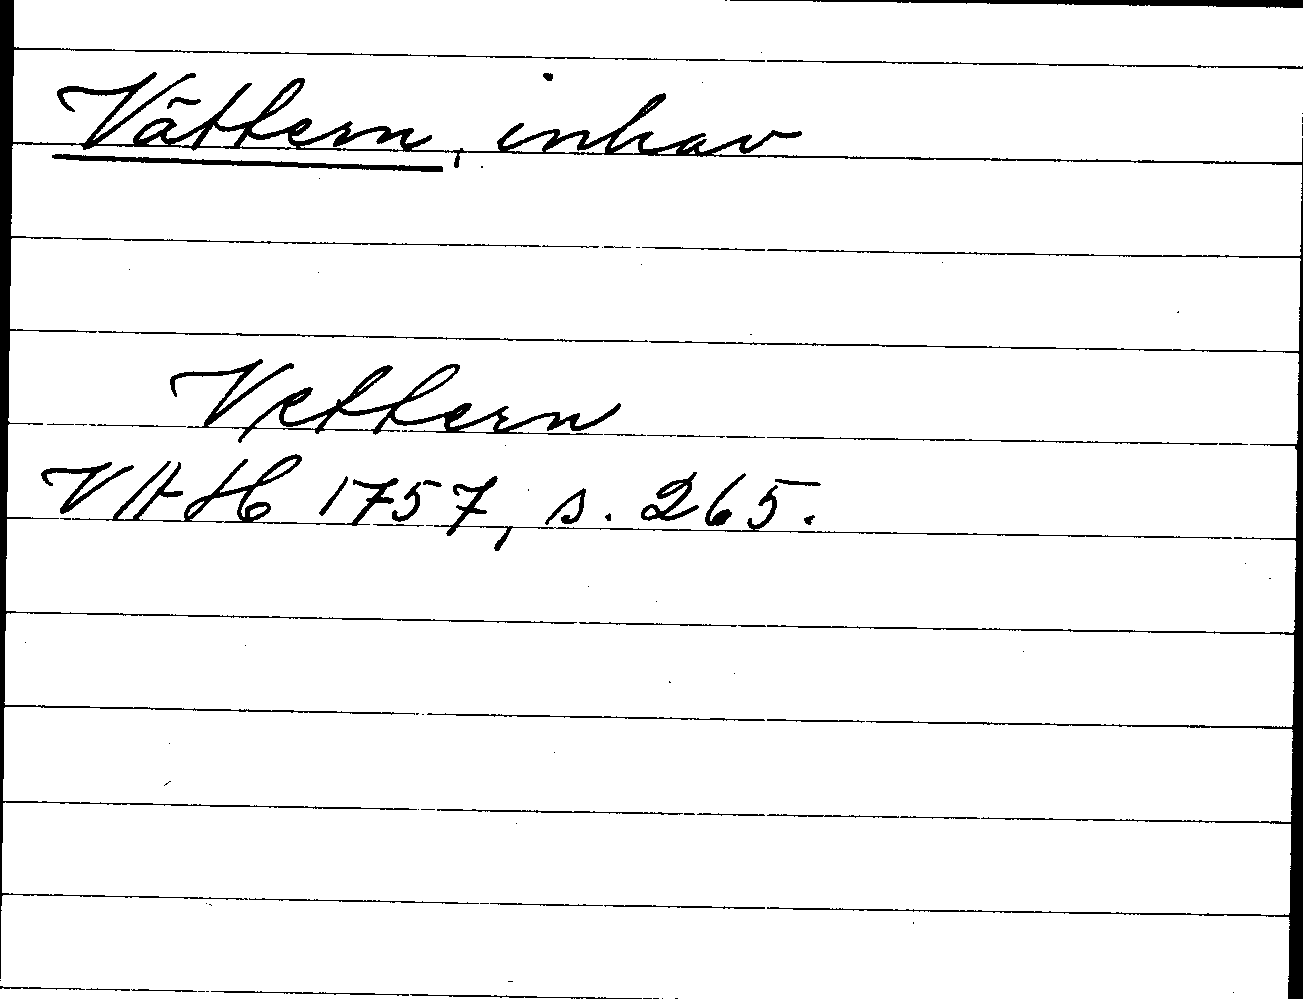 Vättern, inhav
Vettern
VAH 1757, s. 265.